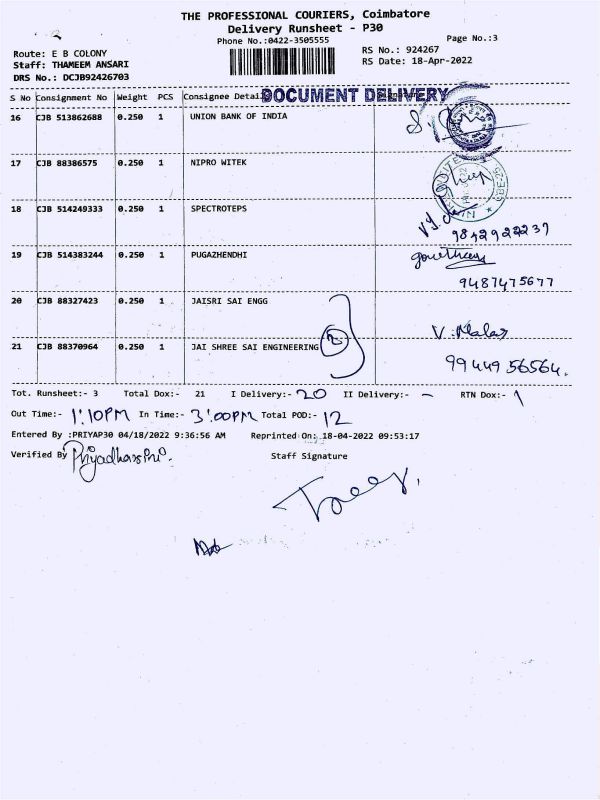 THE PROFESSIONAL COURIERS, Coimbatore
Delivery Runsheet - P30
Phone No.:0422-3505555
Page No.:3
Route: E B COLONY
RS No.: 924267
Staff: THAMEEM ANSARI
RS Date: 18-Apr-2022
DRS No.: DCJB92426703
DOCUMENT DELIVERY
S No Consignment No Weight PCS Consignee Detail
16 CJB 513862688 0.250 1 UNION BANK OF INDIA
17 CJB 88386575 0.250 1 NIPRO WITEK
18 CJB 514249333 0.250 1 SPECTROTEPS
9842922237
19 CJB 514383244 0.250 1 PUGAZHENDHI
9487475677
20 CJB 88327423 0.250 1 JAISRI SAI ENGG
V. Malar
21 CJB 88370964 0.250 1 JAI SHREE SAI ENGINEERING 2
99449 56564.
Tot. Runsheet:- 3 Total Dox:- 21 I Delivery:- 20 II Delivery:- - RTN Dox:- 1
Out Time:- 1:10PM In Time:- 3:00PM Total POD:- 12
Entered By :PRIYAP30 04/18/2022 9:36:56 AM Reprinted On: 18-04-2022 09:53:17
Verified By
Staff Signature